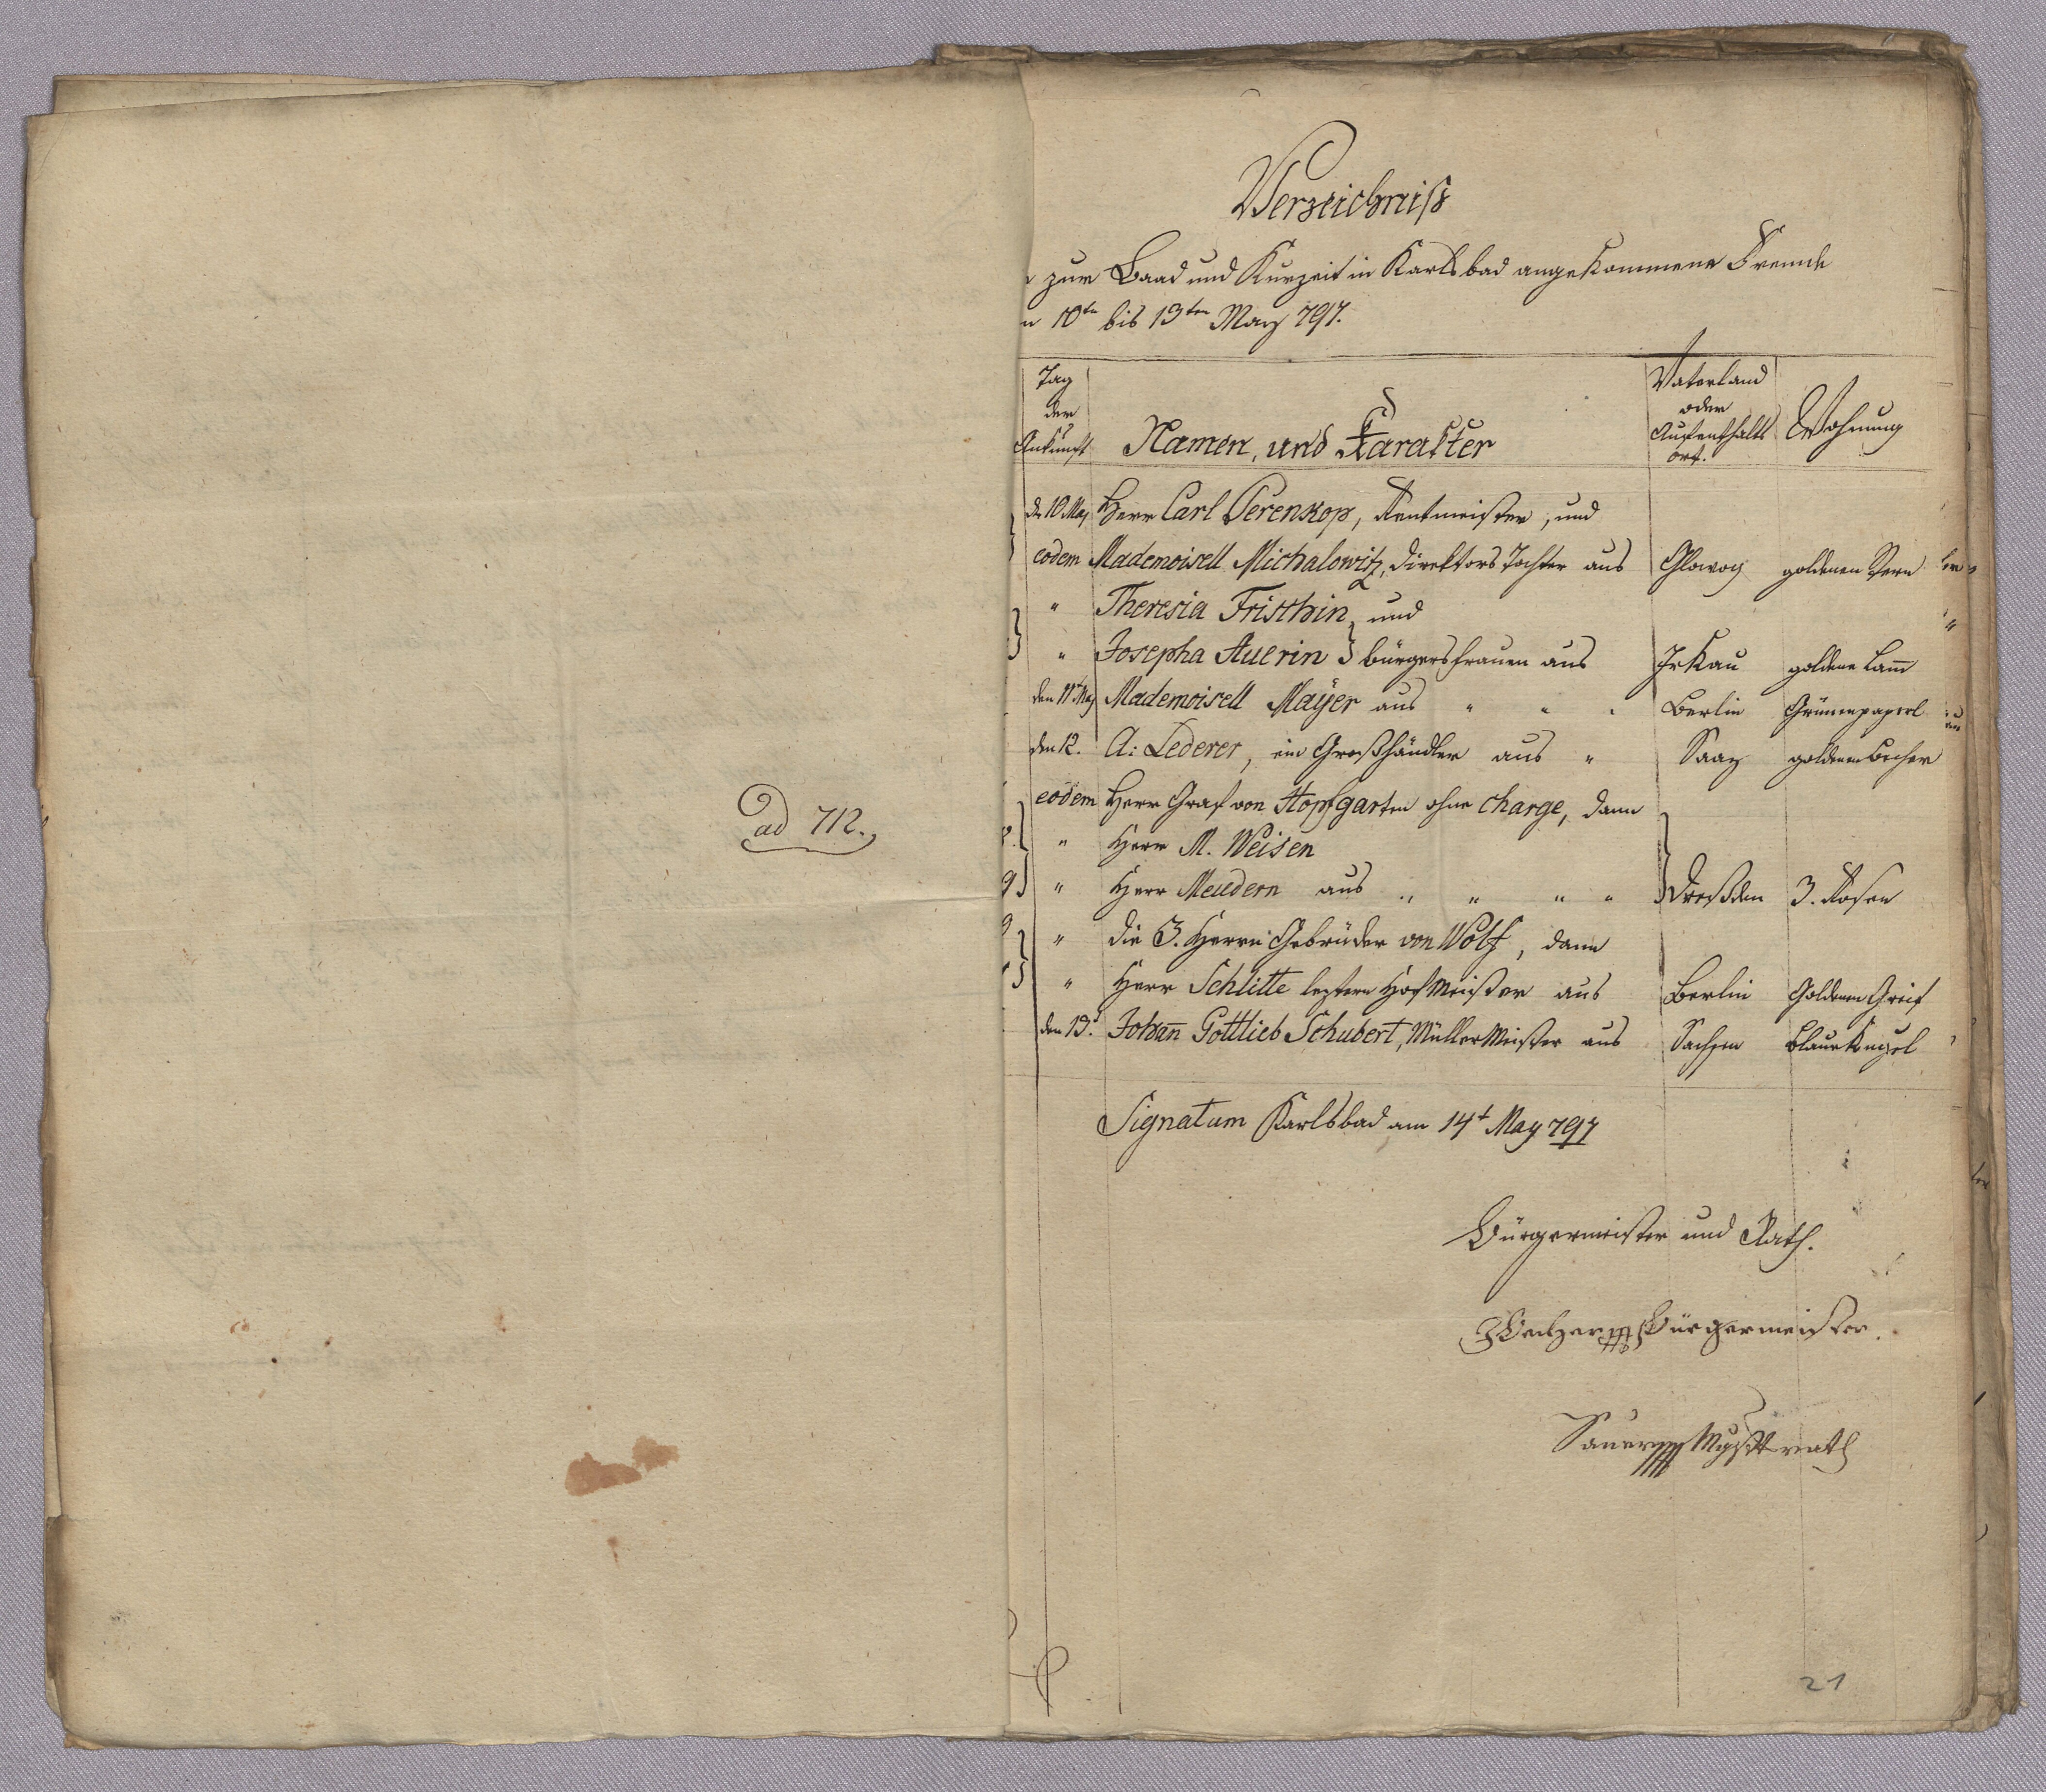 ad 712.
Verzeichniß
zur Baad und Kurzeit in Karlsbad angekommene Fremde
10ten bis 13ten May 797.
Tag
der
Ankunft
Namen, und Karakter
Vaterland
oder
Aufenthalts
Ort.
Wohnung
den 10. May Herr Carl Perenkop, Rentmeister, und
eodem Mademoisell Michalowitz, Direktors Tochter aus Glowog goldenen Stern
" Theresia Fristhin und
" Josepha Auerin } bürgersfrauen aus Jrkau goldene Lam̄
den 11t May Mademoisell Mayer aus " " " Berlin Grünenpaperl
den 12. A: Lederer, ein Großhändler aus " Saaz goldenen becher
eodem Herr Graf von Hopfgarten ohne Charge, dann
" Herr M. Weisen
" Herr Meudern aus " " " " } Dreßden 3. Rosen
" die 3. Herrn Gebrüder von Wolf, dann
" Herr Schlitte leztern HofMeister aus Berlin Goldenen Greif
den 13t Johan̄ Gottlieb Schubert, MüllerMeister aus Sachsen blaue Kugel
Signatum Karlsbad am 14t May 797
Bürgermeister und Rath.
Bürgermeister.
Sauer
21